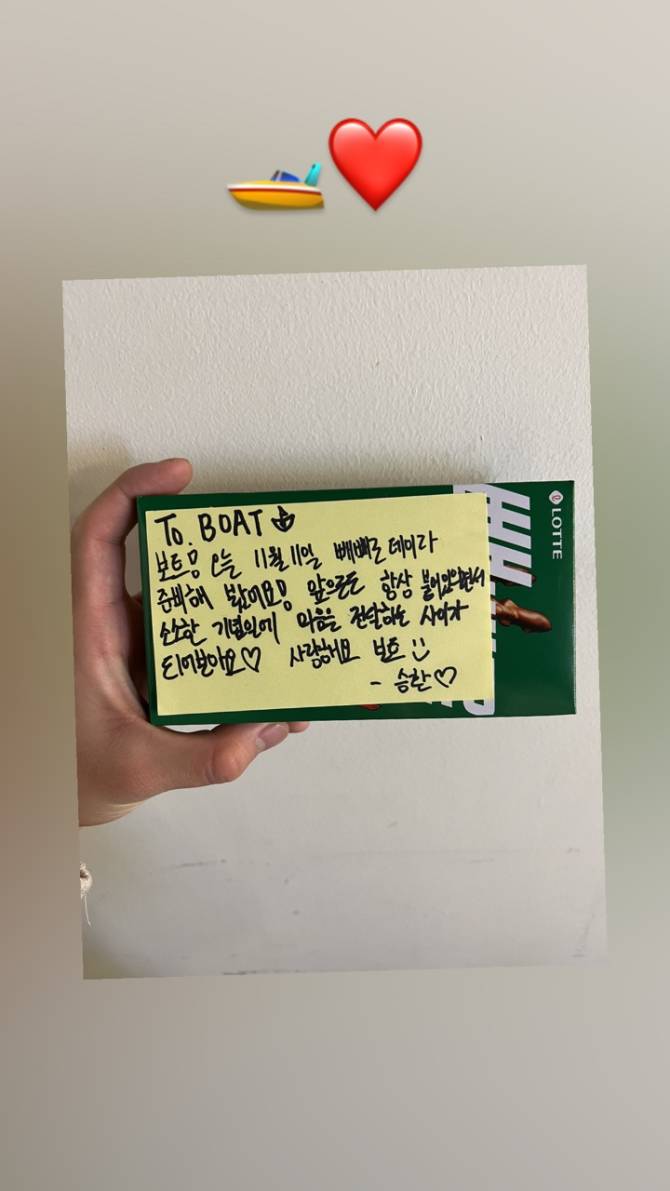 To. BOAT
보트용 오늘 11월 11일 빼빼로 데이라
준비해 봤어요용 앞으로도 항상 붙어있으면서
소소한 기념일에 마음을 전달하는 사이가
되어보아요♡ 사랑해요 보트 :)
- 승환♡
LOTTE